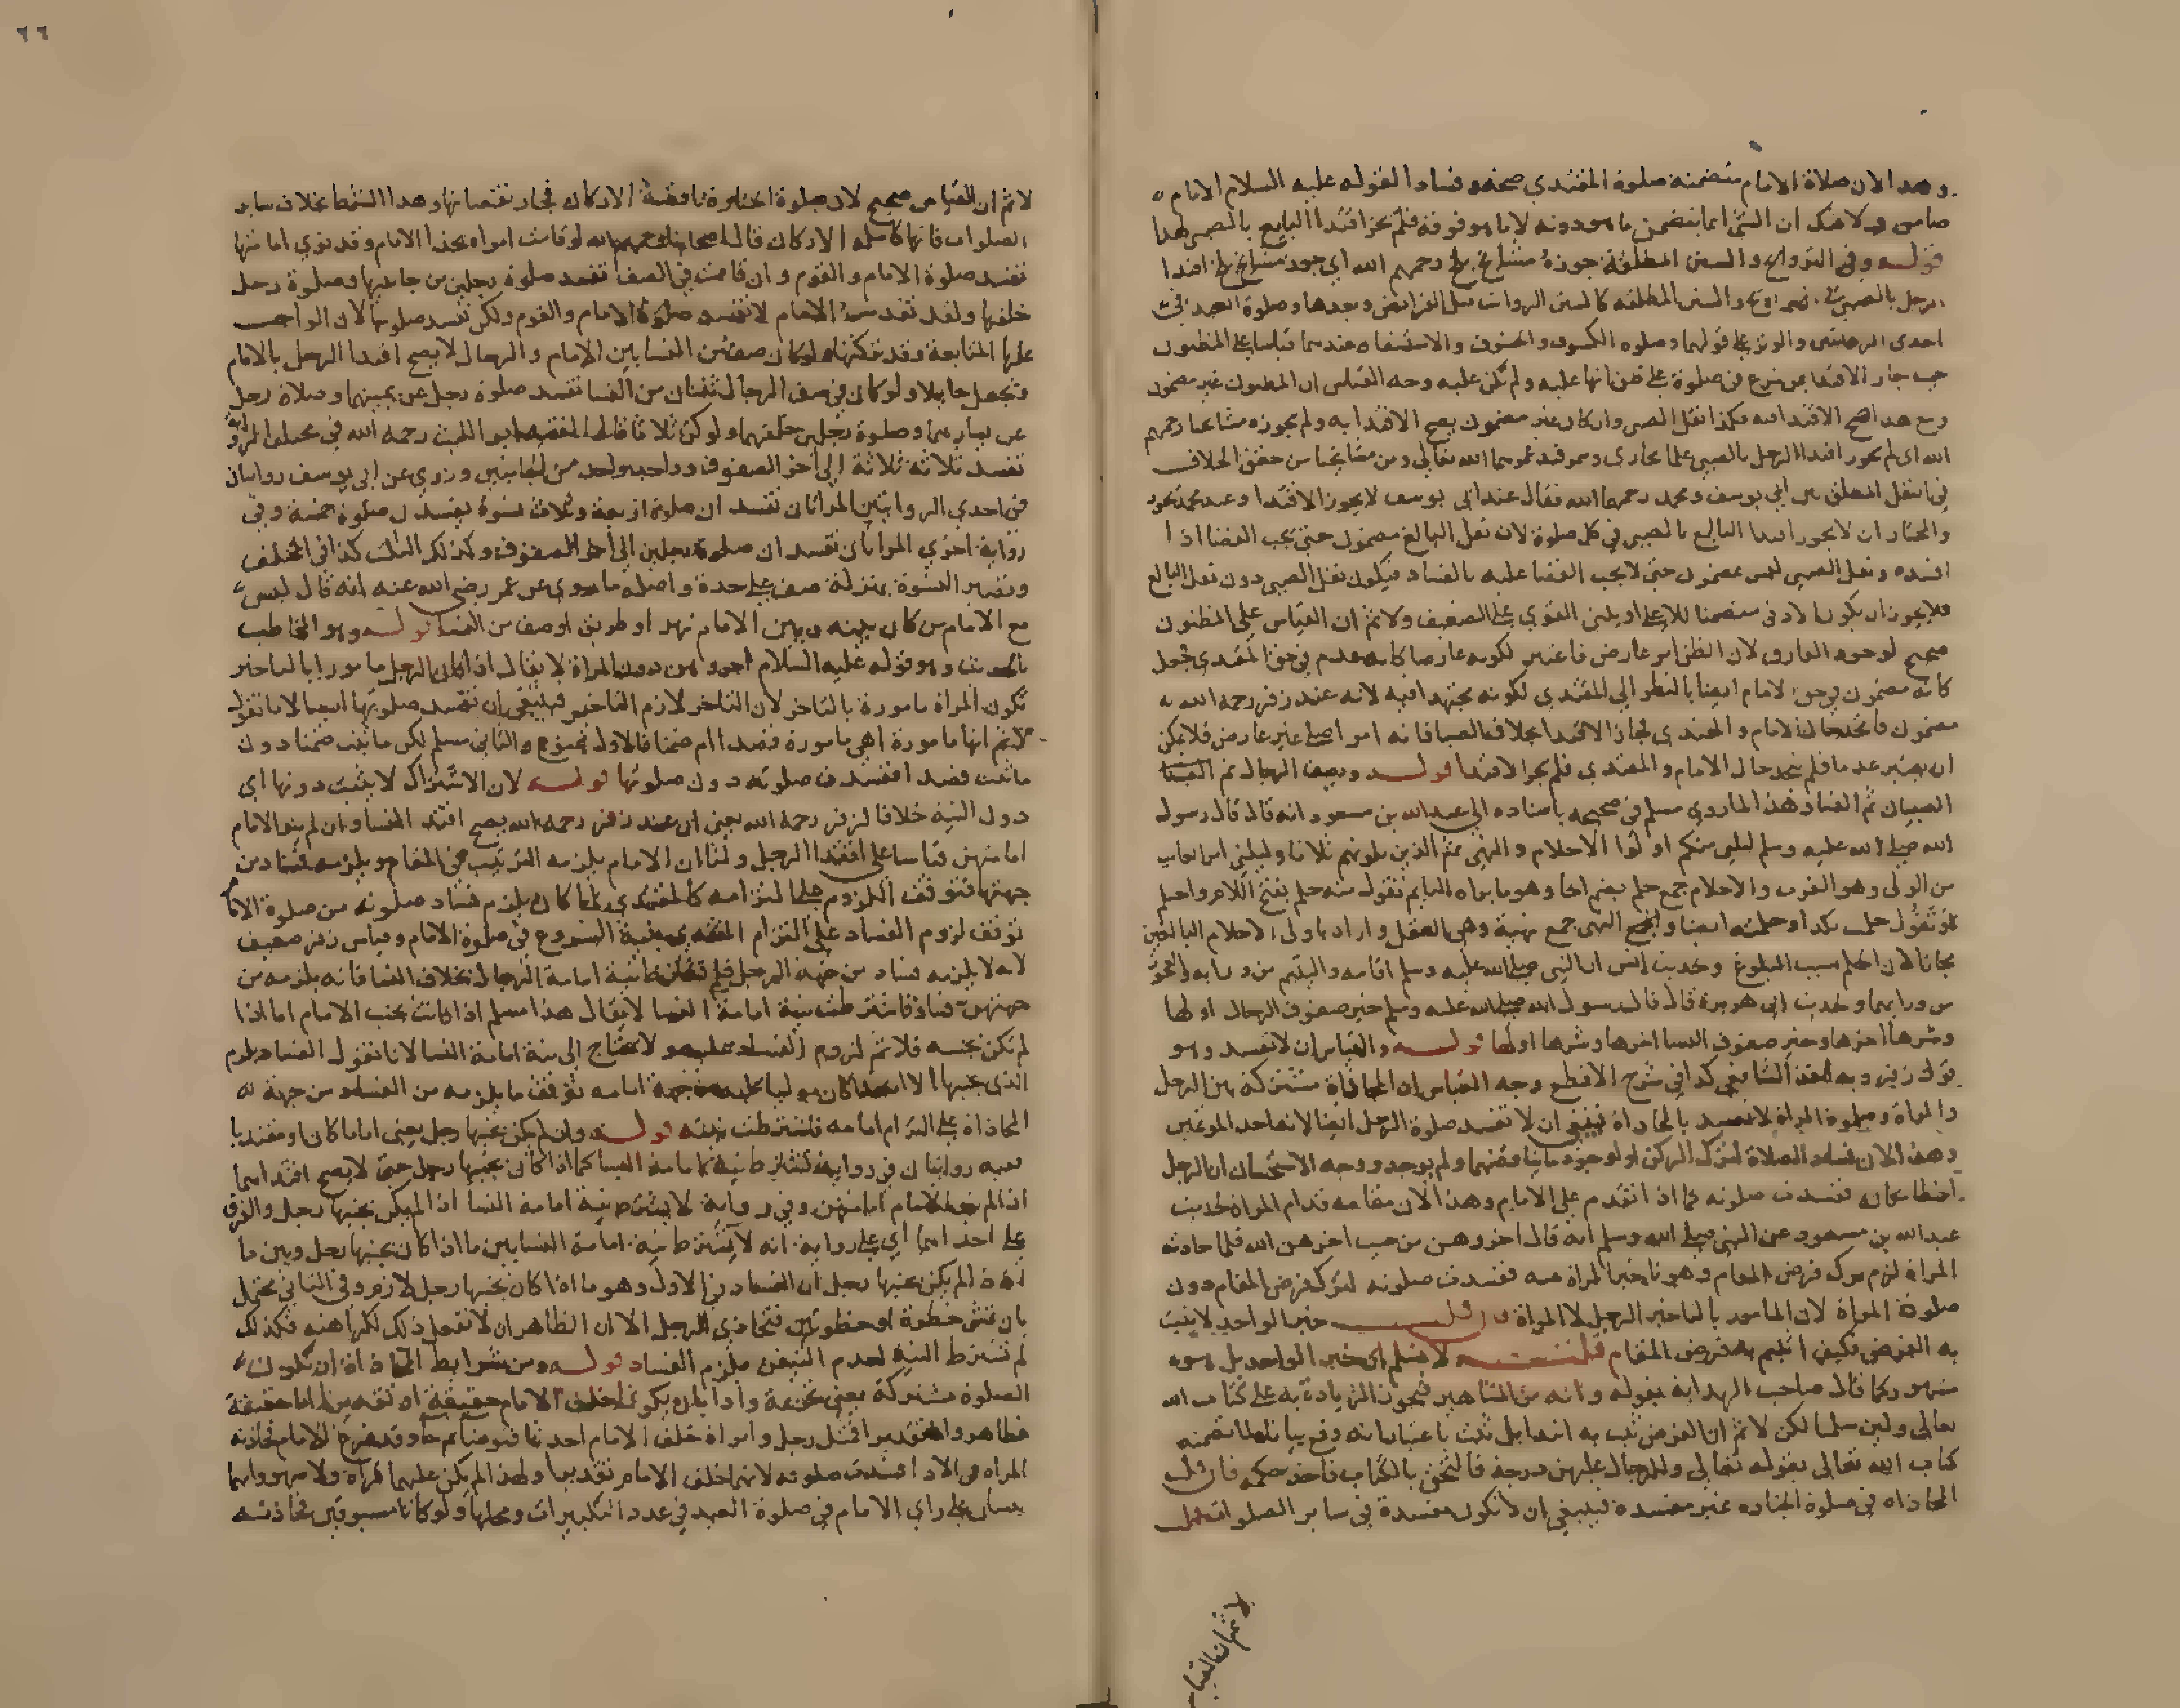 وهذا لان صلاة الامام متضمنه صلوة المقتدي صحة وفسادا لقوله عليه السلام الامام
ضامن ولا شك ان الشي انما يتضمن ما هو دونه لا ما هو فوقه فلم يجز اقتدا البالغ بالصبي لهذا
قوله وفي التراويح والسنن المطلقة جوزه مشايخ بلخ رحمهم الله اي جوز مشايخ بلخ اقتدا
الرجل بالصبي في التراويح والسنن المطلقه كالسنن الرواتب قبل الفرايض وبعدها وصلوة العيد في
احدى الروايتين والوتر على قولهما وصلوه الكسوف والخسوف والاستسقاء عندهما قياسا على المظنون
حيث جاز الاقتدا بمن شرع في صلوة على ظن انها عليه ولم تكن عليه وجه القياس ان المظنون غير مضمون
ومع هذا صح الاقتدا به فكذا نفل الصبي وان كان غير مضمون يصح الاقتدا به ولم يجوزه مشايخنا رحمهم
الله اي لم يجوز اقتدا الرجل بالصبي علما بخارى وسمرقند رحمهما الله تعالى ومن مشايخنا من حقق الخلاف
في النفل المطلق بين ابي يوسف ومحمد رحمهما الله فقال عند ابي يوسف لا يجوز الاقتدا وعند محمد يجوز
والمختار ان لا يجوز اقتدا البالغ بالصبي في كل صلوة لان نفل البالغ مضمون حتى يجب القضا اذا
افسده ونفل الصبي ليس بمضمون حتى لا يجب القضا عليه بالفساد فيكون نفل الصبي دون نفل البالغ
فلا يجوز ان يكون الادنى متضمنا للاعلى او يبنى القوي على الضعيف ولا نم ان القياس على المظنون
صحيح لوجود الفارق لان الظن امر عارض فاعتبر لكونه عارضا كانه عدم في حق المقتدي فجعل
كانه مضمون في حق الامام ايضا بالنظر الى المقتدي لكونه مجتهدا فيه لانه عند زفر رحمه الله
مضمون فاتحد حال الامام والمقتدي فجاز الاقتدا بخلاف الصبا فانه امر اصلي غير عارض فلا يمكن
ان يعتبر عدما فلم يتحد حال الامام والمقتدي فلم يجز الاقتدا قوله ويصف الرجال ثم
الصبيان ثم النسا وهذا لما روى مسلم في صحيحه باسناده الى عبد الله بن مسعود انه قال قال رسول
الله صلى الله عليه وسلم ليلني منكم اولوا الاحلام والنهى ثم الذين يلونهم ثلاثا وليلني امر الغايب
من الولي وهو القرب والاحلام جمع حلم بضم الحا وهو ما يراه النايم تقول منه حلم بفتح اللام واحتلم
تقول حلمت بكذا وحلمته ايضا والنهى جمع نهية وهي العقل واراد باولى الاحلام البالغين
مجازا لان الحلم سبب البلوغ ولحديث انس ان النبي صلى الله عليه وسلم اقامه واليتيم من ورايه والعجوز
من ورايهما ولحديث ابي هريرة قال قال رسول الله صلى الله عليه وسلم خير صفوف الرجال اولها
وشرها اخرها وخير صفوف النسا اخرها وشرها اولها قوله والقياس ان لا تفسد وهو
قول زفر وبه اخذ الشافعي كذا في شرح الاقطع وجه القياس ان المحاذاة مشتركة بين الرجل
والمراة وصلوة المراة لا تفسد بالمحاذاة فينبغي ان لا تفسد صلوة الرجل ايضا لانه احد الموضعين
وهذا لان فساد الصلاة لترك الركن او لوجود ما يناقضها ولم يوجد ووجه الاستحسان ان الرجل
اخطا مكانه ففسدت صلوته كما اذا تقدم على الامام وهذا لان مقامه قدام المراة لحديث
عبد الله بن مسعود عن النبي صلى الله وسلم انه قال اخروهن من حيث اخرهن الله فلما حاذته
المراة لزم ترك فرض المقام وهو تاخير المراة عنه ففسدت صلوته لترك فرض المقام دون
صلوة المراة لان المامور بالتاخير الرجل لا المراة فان قلت خبر الواحد لا يثبت
به الفرض فكيف اثبتم به فرض المقام قلت لا نسلم انه خبر الواحد بل هو
مشهور كما قال صاحب الهداية بقوله وانه من المشاهير فيجوز الزيادة به على كتاب الله
تعالى ولئن سلمنا لكن لا نم ان الفرض ثبت به ابتدا بل ثبت باعتبار انه وقع بيانا لما تضمنه
كتاب الله تعالى بقوله تعالى وللرجال عليهن درجة فالتحق بالكتاب فاخذ حكمه فان قلت
المحاذاة في صلوة الجنازه غير مفسده فينبغي ان لا تكون مفسدة في ساير الصلوات قلت
لا نم ان القياس
٦٦
لا نم ان القياس صحيح لان صلوة الجنازة ناقصة الاركان فجاز نقصانها وهذا الشرط بخلاف ساير
الصلوات فانها كاملة الاركان قال اصحابنا رحمهم الله لو قامت امراة بحذا الامام وقد نوى امامتها
تفسد صلوة الامام والقوم وان قامت في الصف تفسد صلوة رجلين من جانبيها وصلوة رجل
خلفها ولقد تقدمت الامام لا تفسد صلوة الامام والقوم ولكن تفسد صلوتها لان الواجب
عليها المتابعة وقد تركتها ولو كان صف من النسا بين الامام والرجال لا يصح اقتدا الرجل بالامام
وتجعل حايلا ولو كان في صف الرجال ثنتان من النسا تفسد صلوة رجل عن يمينهما وصلاة رجل
عن يسارهما وصلوة رجلين خلفهما ولو كن ثلاثا قال الفقيه ابو الليث رحمه الله في مختلف الرواية
تفسد ثلاثة ثلاثة الى اخر الصفوف وواحد وواحد من الجانبين وروي عن ابي يوسف روايتان
في احدى الروايتين المراتان تفسدان صلوة اربعة وثلاث نسوة يفسدن صلوة خمسة وفي
رواية اخرى المراتان تفسدان صلوة رجلين الى اخر الصفوف وكذلك الثلث كذا في المختلف
وتصير النسوة بمنزلة صف على حدة واصله ما روى عن عمر رضي الله عنه انه قال ليس
مع الامام من كان بينه وبين الامام نهر او طريق او صف من النسا قوله وهو المخاطب
بالحديث وهو قوله عليه السلام اخروهن دون المراة لا يقال اذا كان الرجل مامورا بالتاخير
تكون المراة مامورة بالتاخر لان التاخر لازم التاخير فينبغي ان تفسد صلوتها ايضا لانا نقول
لا نم انها مامورة اهي مامورة قصدا ام ضمنا فالاول ممنوع والثاني مسلم لكن ما يثبت ضمنا دون
ما ثبت قصدا ففسدت صلوته دون صلوتها قوله لان الاشتراك لا يثبت دونها اي
دون النية خلافا لزفر رحمه الله يعني ان عند زفر رحمه الله يصح اقتدا النسا وان لم ينو الامام
امامتهن قياسا على اقتدا الرجل ولنا ان الامام يلزمه الترتيب في المقام ويلزمه فساد من
جهتها فتوقف اللزوم على التزامه كالمقتدي لما كان يلزم فساد صلوته من صلوة الامام
توقف لزوم الفساد على التزام المقتدي بنية الشروع في صلوة الامام وقياس زفر ضعيف
لانه لا يلزمه فساد من جهة الرجل فلم تشترط نية امامة الرجال بخلاف النسا فانه يلزمه من
جهتهن فساد فاشترطت نية امامة النسا لا يقال هذا مسلم اذا كانت بجنب الامام اما اذا
لم تكن بجنبه فلا نم لزوم الفساد عليه ولا يحتاج الى نية امامة النسا لانا نقول الفساد يلزم
الذي بجنبها الا انه لما كان موليا عليه من جهة امامه توقف ما يلزمه من الفساد من جهة
المحاذاة على التزام امامه فاشترطت نيته قوله وان لم يكن بجنبها رجل يعني اماما كان او مقتديا
ففيه روايتان في رواية تشترط نية امامة النسا كما اذا كان بجنبها رجل حتى لا يصح اقتداها
اذا لم ينو الامام امامتهن وفي رواية لا يشترط نية امامة النسا اذا لم يكن بجنبها رجل والفرق
على احداهما اي على رواية انه لا يشترط نية امامة النسا بين ما اذا كان بجنبها رجل وبين ما
اذا لم يكن بجنبها رجل ان الفساد في الاول وهو ما اذا كان بجنبها رجل لازم وفي الثاني محتمل
بان تمشي خطوة او خطوتين فتحاذي الرجل الا ان الظاهر ان لا تفعل ذلك لكراهته فكذلك
لم تشترط النية لعدم التيقن بلزوم الفساد قوله ومن شرايط المحاذاة ان تكون
الصلوة مشتركة يعني تحريمة وادا بان يكونا خلف الامام حقيقة او تقديرا اما حقيقة
فظاهر واما تقديرا فمثل رجل وامراة خلف الامام احدثا فتوضيا ثم جاا وقد فرغ الامام فحاذته
المراة في الادا فسدت صلوته لانهما خلف الامام تقديرا ولهذا لم يكن عليهما قراة ولا سهو وانهما
يسايران على راي الامام في صلوة العيد في عدد التكبيرات ومحلها ولو كانا مسبوقين فحاذته